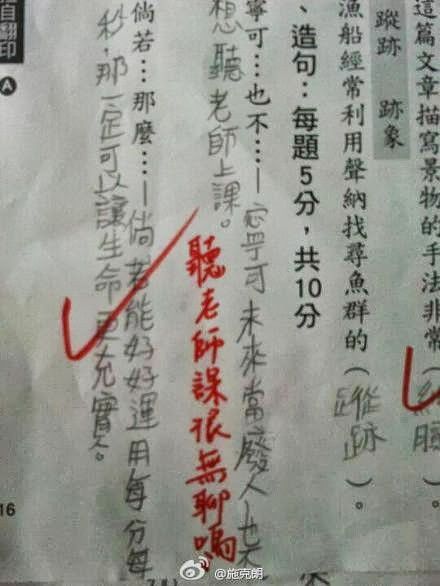 這篇文章描寫景物的手法非常（細膩
蹤跡 跡象
漁船經常利用聲納找尋魚群的（蹤跡）。
、造句：每題5分，共10分
寧可…也不…—寧可未來當廢人也不
想聽老師上課。
聽老師課很無聊嗎
倘若…那麼…—倘若能好好運用每分每
秒，那一定可以讓生命更充實。
翻印 A
16
@施克朗